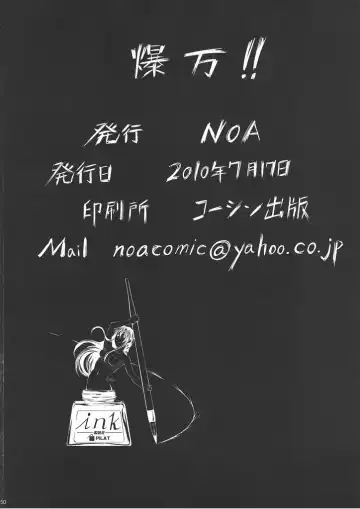 爆万!!
発行 NOA
発行日 2010年7月17日
印刷所 コーシン出版
Mail noacomic@yahoo.co.jp
ink
PILAT
50